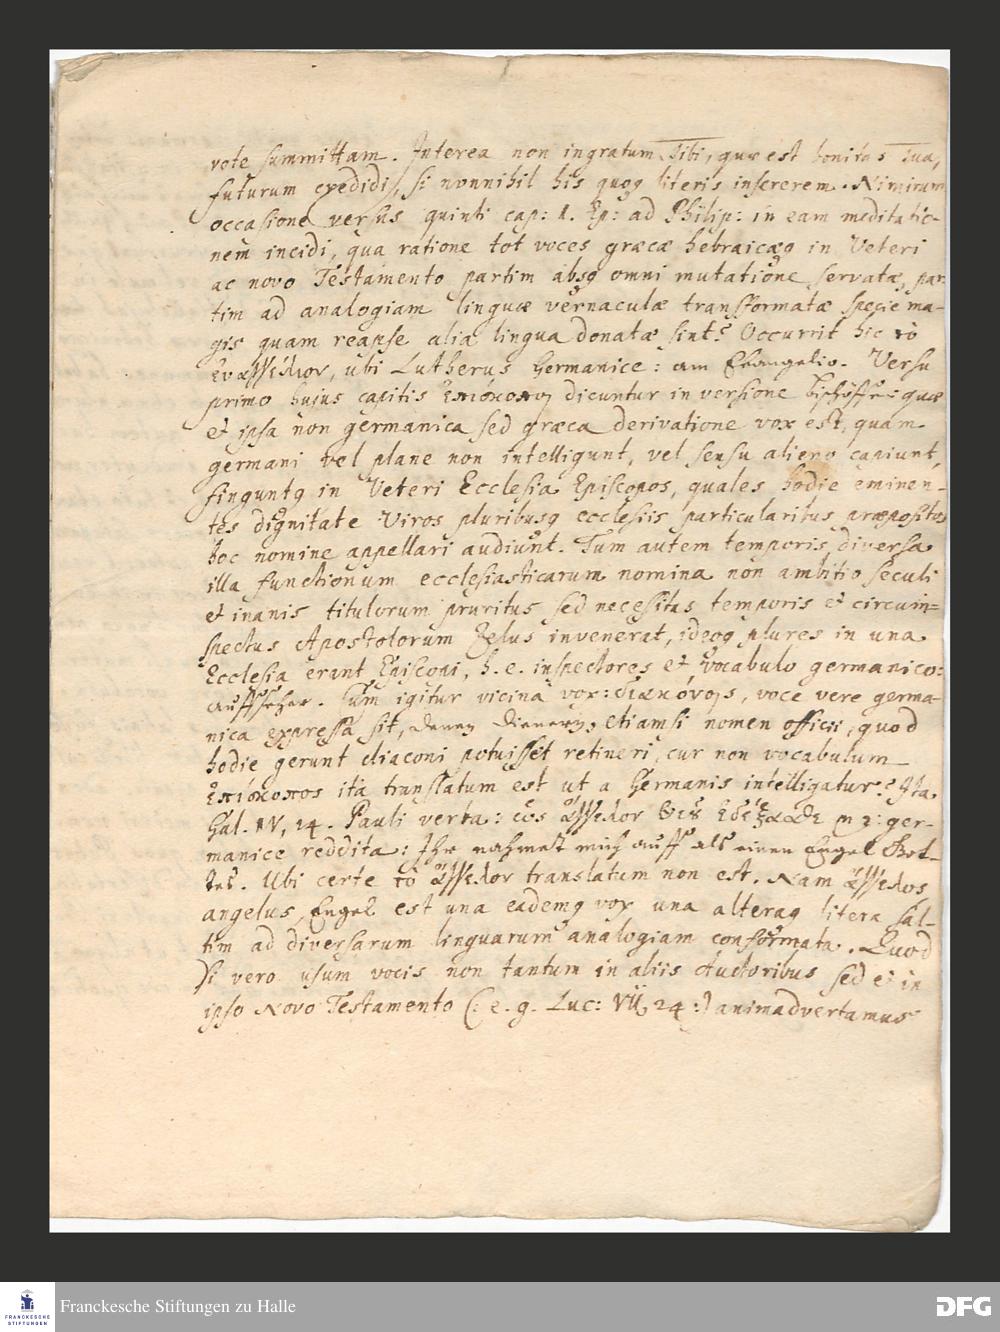 vote summittam. Interea non ingratum Tibi, quæ est bonitas Tua,
futurum credidi, si nonnihil his quoq literis insererem. Nimirum
occasione versus quinti cap: 1. Ep: ad Philip: in eam meditatio-
nem incidi, qua ratione tot voces græcæ hebraicæq in Veteri
ac novo Testamento partim absq omni mutatione servatæ, par
tim ad analogiam linguæ vernaculæ transformatæ specie ma-
gis quam reapse alia lingua donatæ sint? Occurrit hic τὸ
Ευαγγέλιον, ubi Lutherus Germanice: am Evangelio. Versu
primo hujus capitis Επισκοποι dicuntur in versione Bischoffe quæ
et ipsa non germanica sed græca derivatione vox est, quam
germani vel plane non intelligunt, vel sensu alieno capiunt,
finguntq in Veteri Ecclesia Episcopos, quales hodie eminen-
tes dignitate Viros pluribusq ecclesiis particularibus præpositos
hoc nomine appellari audiunt. Tum autem temporis diversa
illa functionum ecclesiasticarum nomina non ambitio seculi
et inanis titulorum pruritus sed necessitas temporis et circum-
spectus Apostolorum Zelus invenerat, ideoq plures in una
Ecclesia erant Episcopi, h. e. inspectores et vocabulo germanico:
auffseher. Cum igitur vicina vox: διακόνοις, voce vere germa-
nica expressa sit, denen Dienern, etiamsi nomen officii, quod
hodie gerunt diaconi potuisset retineri, cur non vocabulum
επίσκοπος ita translatum est ut a Germanis intelligatur? Ita
Gal. IV, 14. Pauli verba: ὡς ἄγγελον Θεοῦ ἐδέξασθε με: ger-
manice reddita: Ihr nahmet mich auff als einen Engel Got-
tes. Ubi certe τὸ ἄγγελον translatum non est. Nam ἄγγελος
angelus, Engel est una eademq vox una alteraq litera sal-
tim ad diversarum linguarum analogiam conformata. Quod
si vero usum vocis non tantum in aliis Auctoribus sed et in
ipso Novo Testamento (: e. g. Luc: VII, 24 :) animadvertamus
Franckesche Stiftungen zu Halle
FRANCKESCHE
STIFTUNGEN
DFG